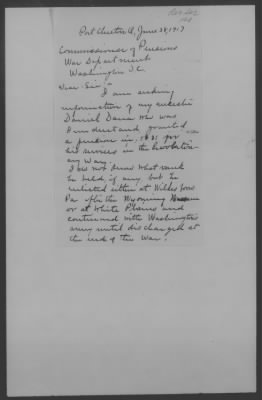 Port Chester N.Y., June 28, 1917
Commissioner of Pensions
War Department
Washington D.C.
Dear Sir:-
I am seeking
information of my ancestor
Daniel Dana who was
I understand granted
a pension in for
his services in the Revolution
ary War.
I do not know what rank
he held, if any, but he
enlisted either at Wilkes Barre
Pa after the Wyoming
or at White Plains and
continued with Washington's
army until discharged at
the end of the War.